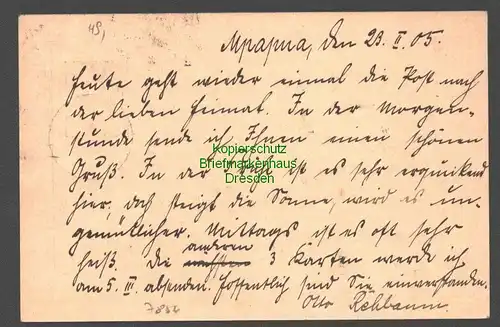 49,
Mpapua, den 23. II. 05.
Heute geht wieder einmal die Post nach
der lieben Heimat. In der Morgen-
stunde sende ich Ihnen einen schönen
Gruß. In der Früh ist es sehr erquickend
hier, doch steigt die Sonne, wird es un-
gemütlicher. Mittags ist es oft sehr
heiß. Die anderen 3 Karten werde ich
am 5. III. absenden. Hoffentlich sind Sie einverstanden.
Otto Rehbaum
Kopierschutz
Briefmarkenhaus
Dresden